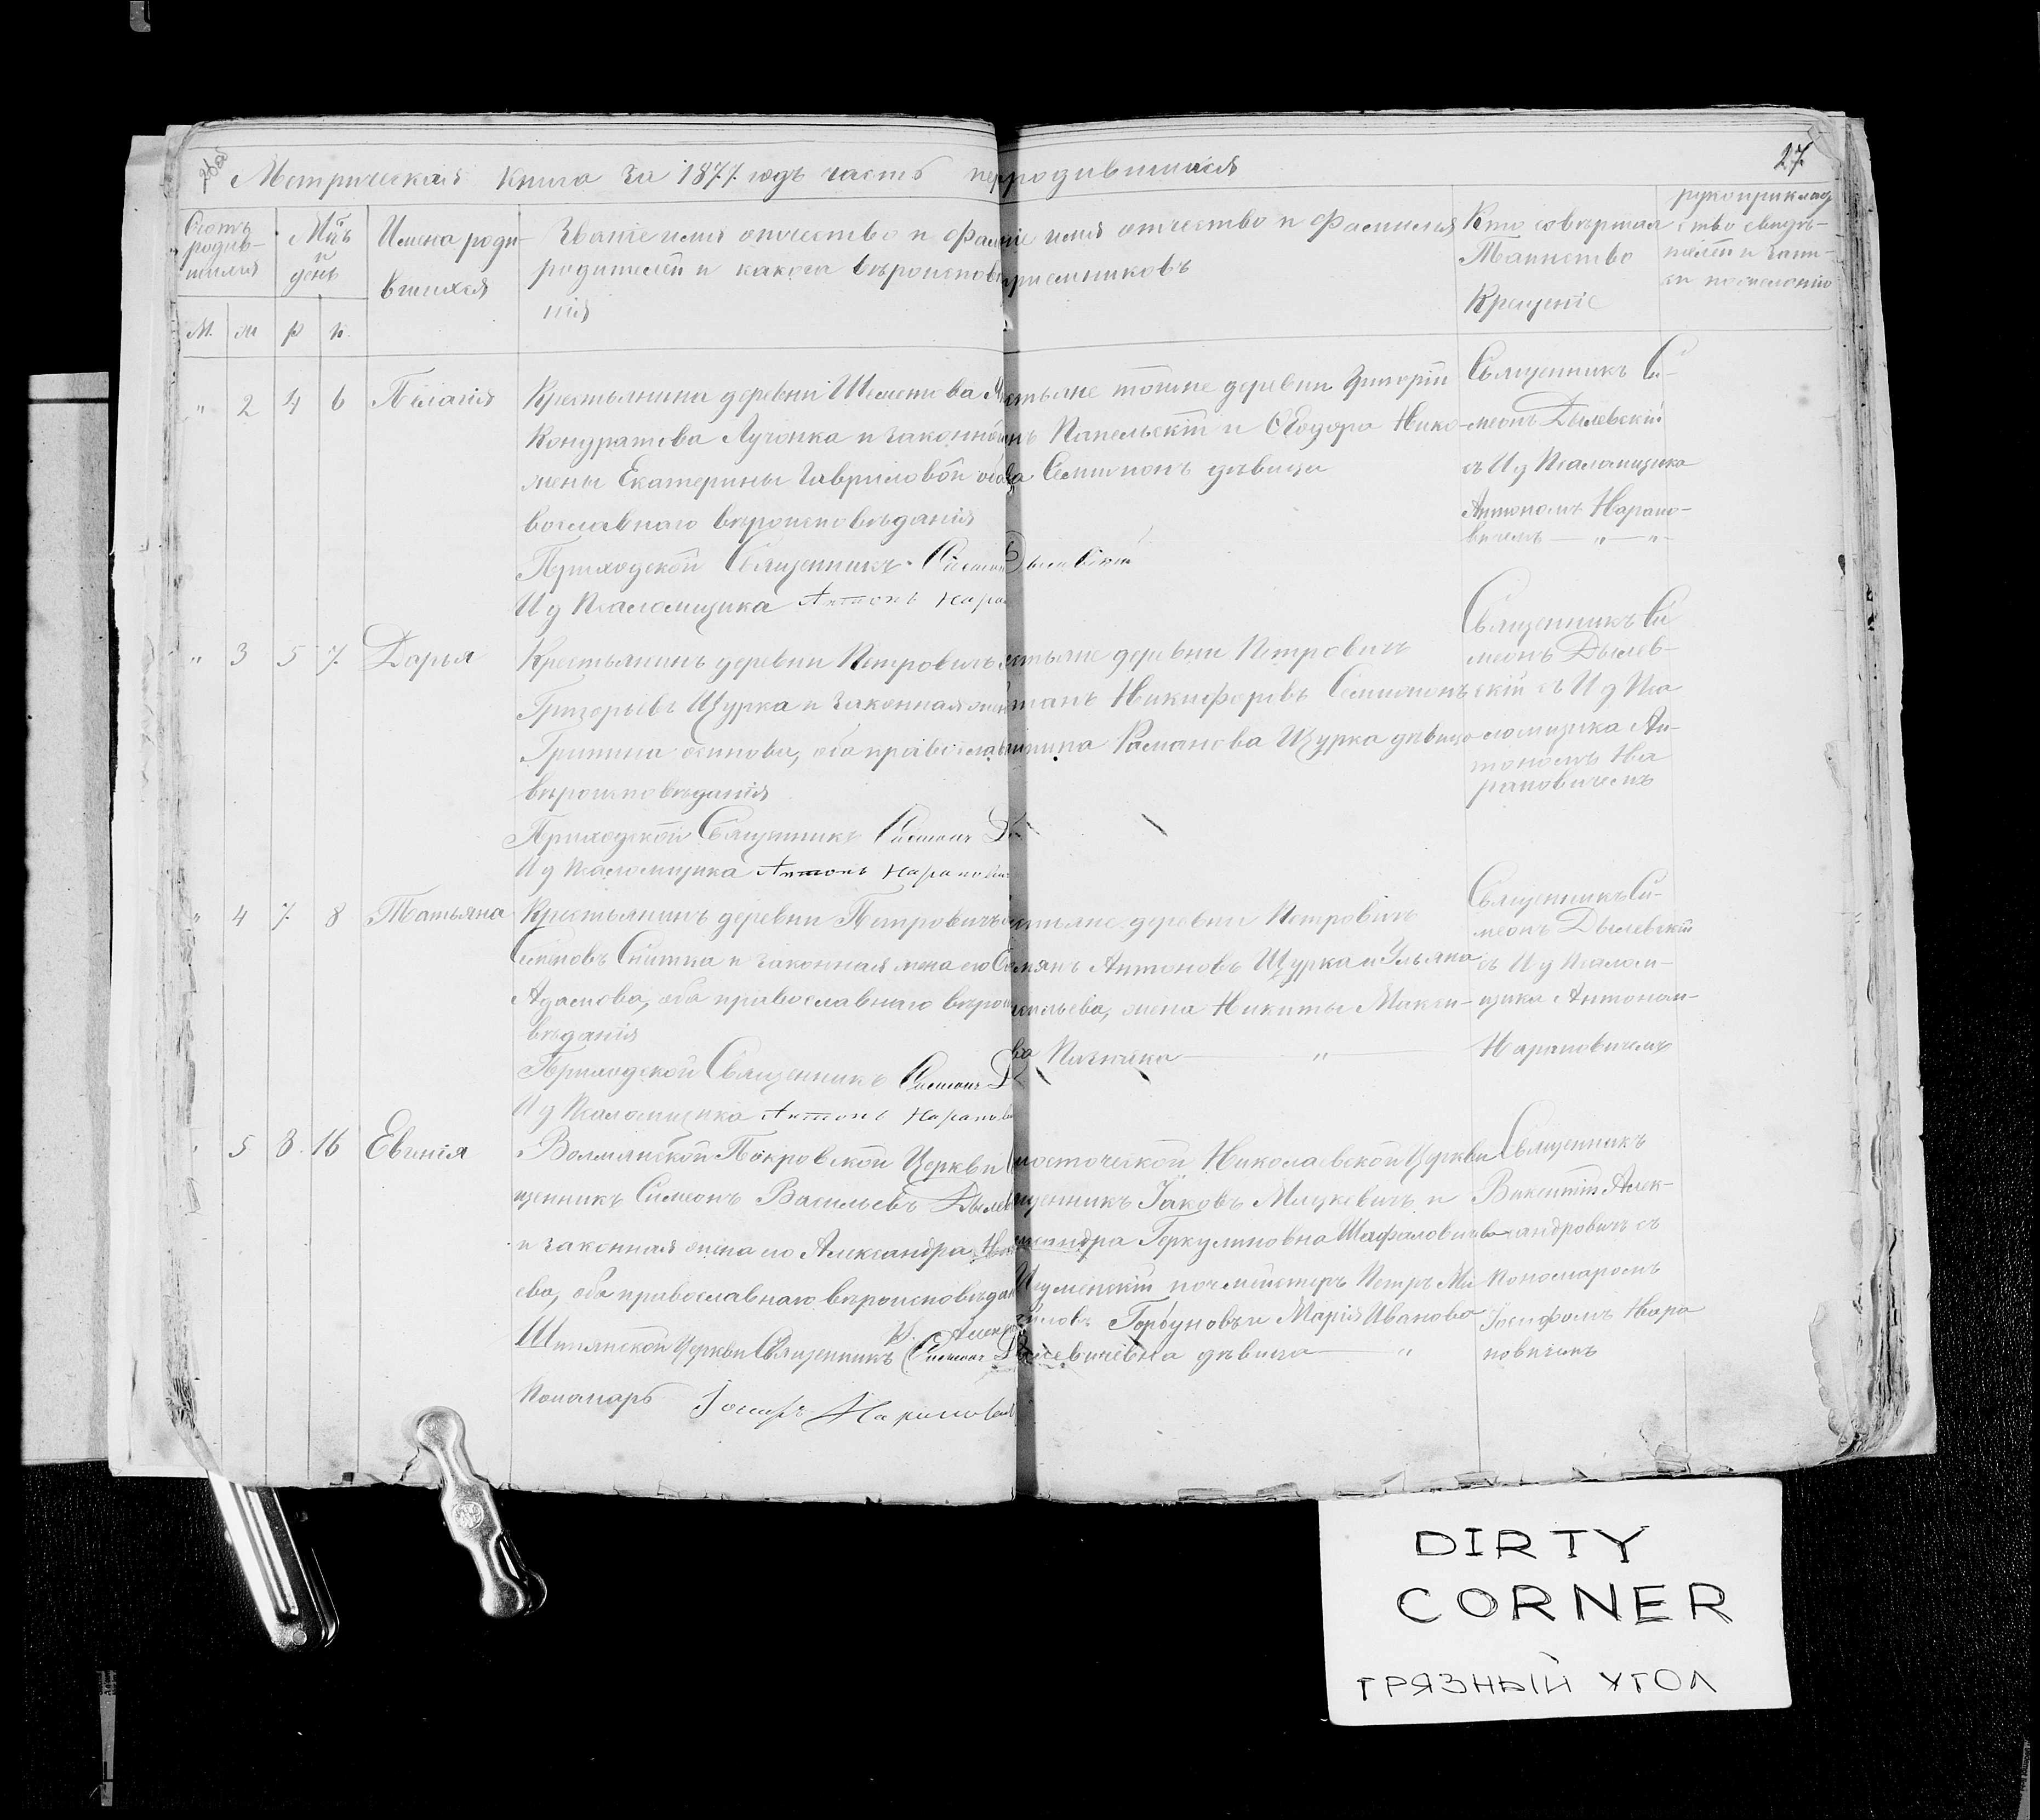 27
Метрическая книга за 1877 годъ часть пер родившихся
Счетъ родив- шихся
Мцъ и день
Имена роди- вшихся
Званіе имя отчество и фами
родителей и какого вѣроисповѣ
нія
іе имя отчество и фамилія
пріемниковъ
Кто совершал
Таинство
Крещеніе
рукоприклад
ство свидѣ-
телей и запи-
си по желанію
М. м р к
" 2 4 6 Пелагія
Крестьянинъ деревни
Кондратова Лучонка и законной
жены Екатерины Гавриловой оба
вославнаго вѣроисповѣданія
Приходской Священникъ Симеонъ
И д Псаломщика Антонъ Нара
стьяне тойже деревни Григорій
Папельскій и Ѳеодора Нико-
ва Селимонъ дѣвица
Священникъ Си-
меонъ Дылевскій
съ И д Псаломщика
Антономъ Нарано-
вичемъ — " — " -
" 3 5 7 Дарья
Крестьянинъ деревни Петровичъ
Григорьевъ Щурка и законная жен
осипова, оба православ
вѣроисповѣданія
Приходской Священникъ Симеонъ Ды
И д Псаломщика Антонъ Наранович
стьяне деревни Петровичъ
Никифоровъ Селимонъ
Романова Щурка дѣвица
Священникъ Си
меонъ Дылев-
скій съ И д Пса
ломщика Ан-
тономъ На
рановичемъ
" 4 7 8 Татьяна
Крестьянинъ деревни Петровичъ
и законная жена его
Адамова, оба православнаго вѣроис
вѣданія
Приходской Священникъ Симеонъ Д
И д Псаломщика Антонъ Наранов
стьяне деревни Петровичъ
Антоновъ Щурка и Ульяна
жена Никиты Макси-
ва
Священникъ Си-
меонъ Дылевскій
съ И д Псалом-
щика Антоном-
Нарановичемъ
" 5 8 16 Евгенія
Волмянской Покровской Церкви Св
щенникъ Симеонъ Васильевъ Дылев
и законная жена его Александра
ева, оба православнаго вѣроисповѣдан
Церкви Священникъ
Пономарь Іосифъ Наранович
Николаевской Церкви
щенникъ Іаковъ Мицкевичъ и
ксандра Геркулиновна
Игуменскій почмейстеръ Петръ Ми
йловъ Горбуновъ и Марія Иванова
дѣвица — "
Священникъ
Викентій Алек-
сандровичъ съ
Пономаромъ
Іосифомъ Нара
новичемъ
DIRTY
CORNER
ГРЯЗНЫЙ УГОЛ